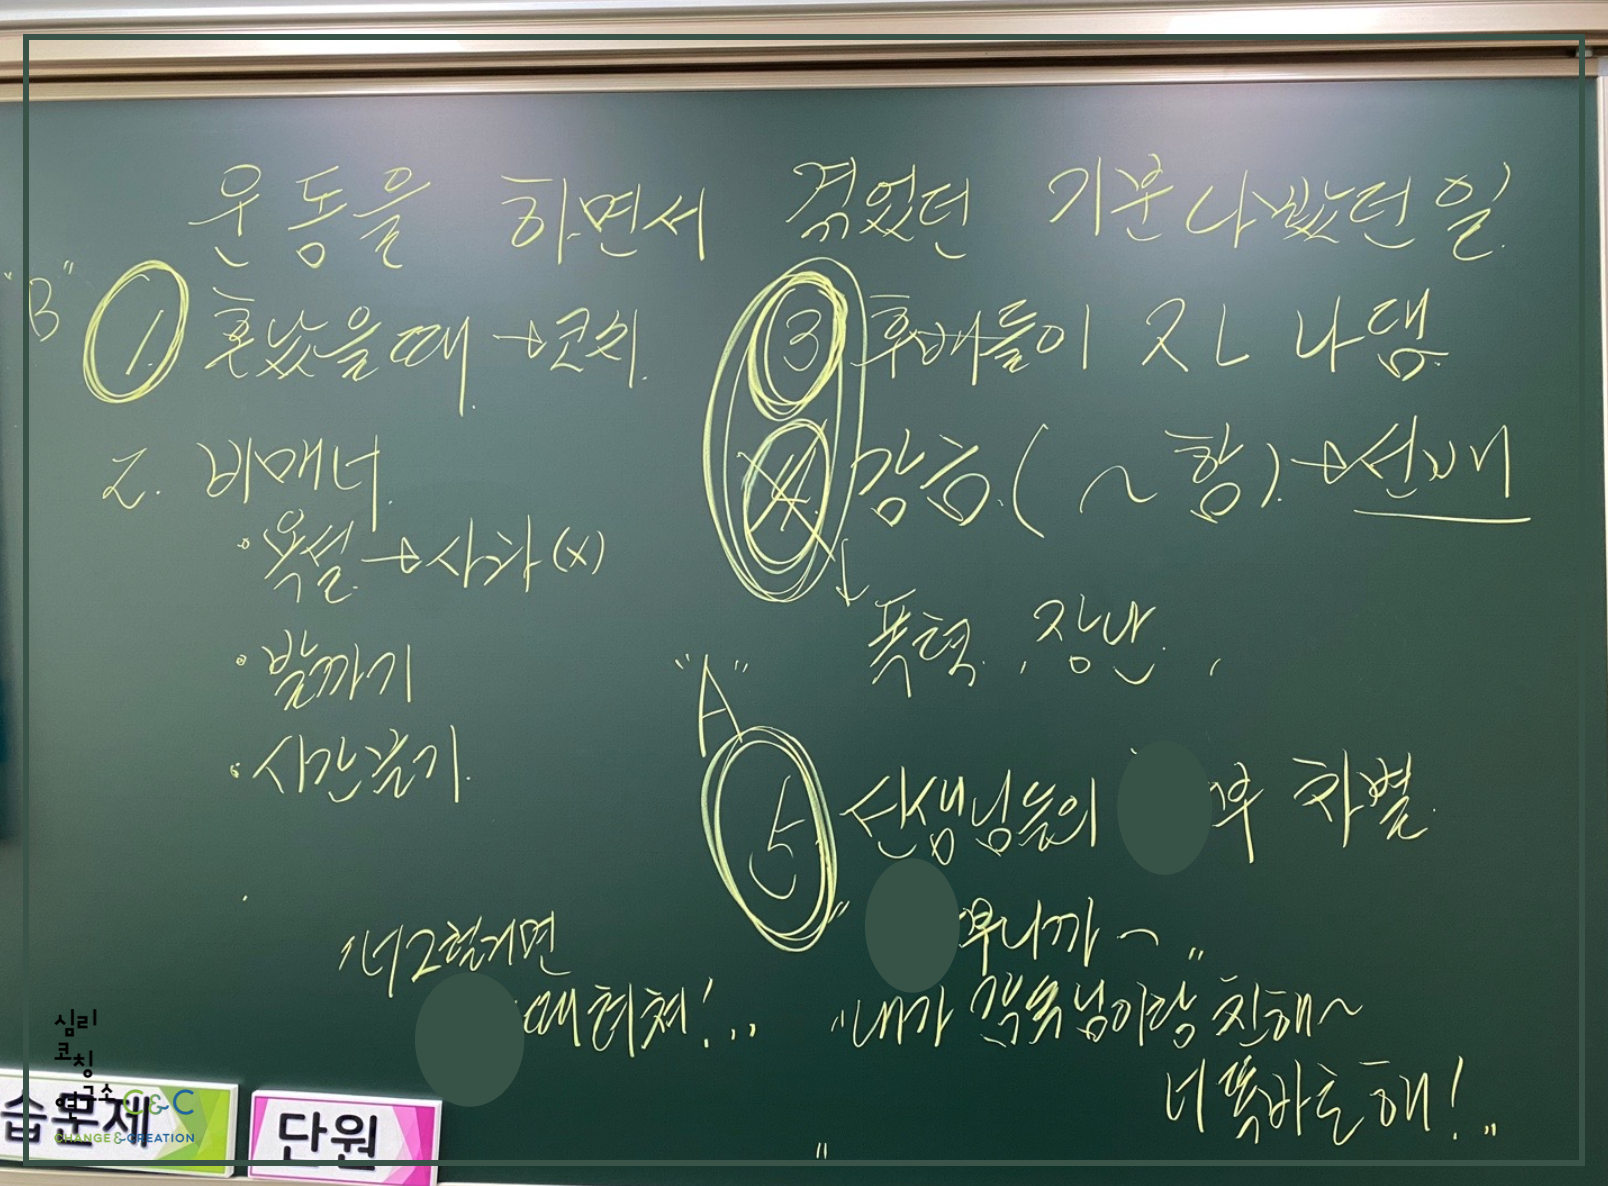 운동을 하면서 겪었던 기분나빴던 일.
"B"
1. 혼났을때 → 코치.
2. 비매너.
• 욕설 → 사과(x)
• 발까기
• 시간끌기.
③ 후배들이 지나댐.
4. 감금.( ~ 함). → 선배
↓ 폭력, 장난,
"A"
5 선생님들의 부 차별.
" 부니까~"
"너 그럴거면
때려쳐!"
"내가 감독님이랑 친해~
너 똑바로 해!"
심리
코칭
연구소 C&C
CHANGE & CREATION
습문제
단원